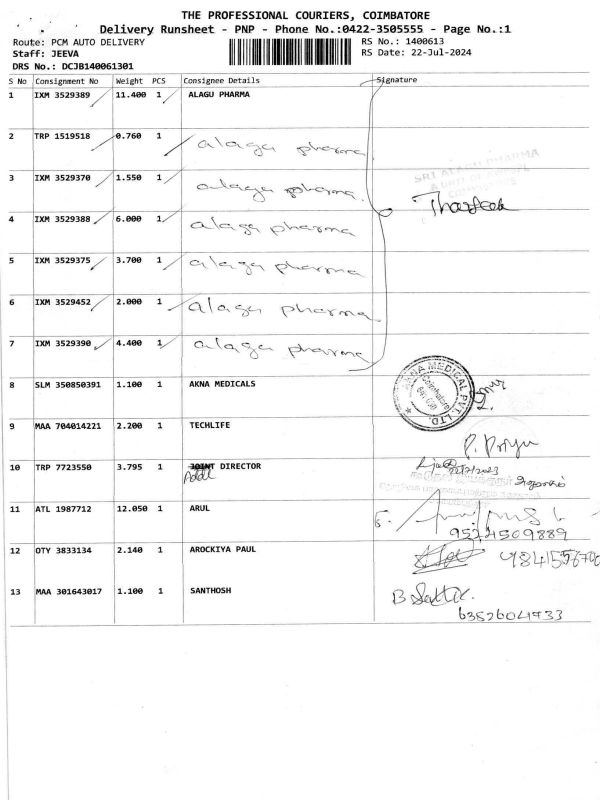 THE PROFESSIONAL COURIERS, COIMBATORE
Delivery Runsheet - PNP - Phone No.:0422-3505555 - Page No.:1
Route: PCM AUTO DELIVERY RS No.: 1400613
Staff: JEEVA RS Date: 22-Jul-2024
DRS No.: DCJB140061301
S No Consignment No Weight PCS Consignee Details Signature
1 IXM 3529389 11.400 1 ALAGU PHARMA
2 TRP 1519518 0.760 1 alagu pharma
SRI ALAGU PHARMA
3 IXM 3529370 1.550 1 alagu pharma.
Tharseek
4 IXM 3529388 6.000 1 alagu pharma
5 IXM 3529375 3.700 1 alagu pharma
6 IXM 3529452 2.000 1 alagu pharma
7 IXM 3529390 4.400 1 alagu pharma
8 SLM 350850391 1.100 1 AKNA MEDICALS AKNA MEDICAL PVT. LTD. Coimbatore
9 MAA 704014221 2.200 1 TECHLIFE P. Priya
10 TRP 7723550 3.795 1 JOINT DIRECTOR
Addl
11 ATL 1987712 12.050 1 ARUL
9524509889
12 OTY 3833134 2.140 1 AROCKIYA PAUL
13 MAA 301643017 1.100 1 SANTHOSH B